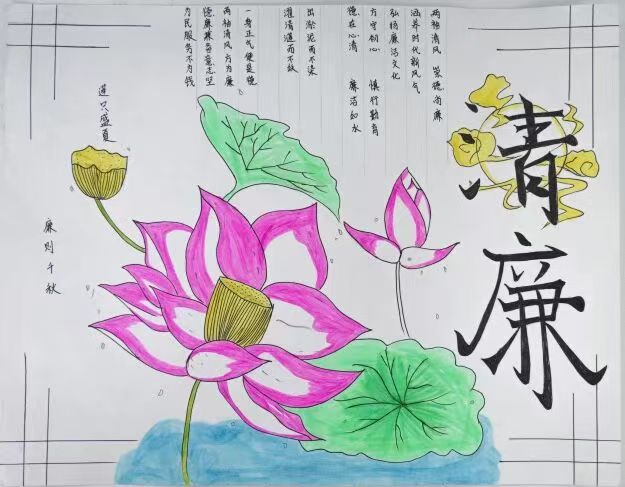 清廉
两袖清风 崇德尚廉
涵养时代新风气
弘扬廉洁文化
方守初心 慎行勤育
德在心清 廉洁如水
出淤泥而不染
濯清涟而不妖
一身正气便是德
两袖清风方为廉
德廉兼备意志坚
为民服务不为钱
莲只盛夏
廉则千秋